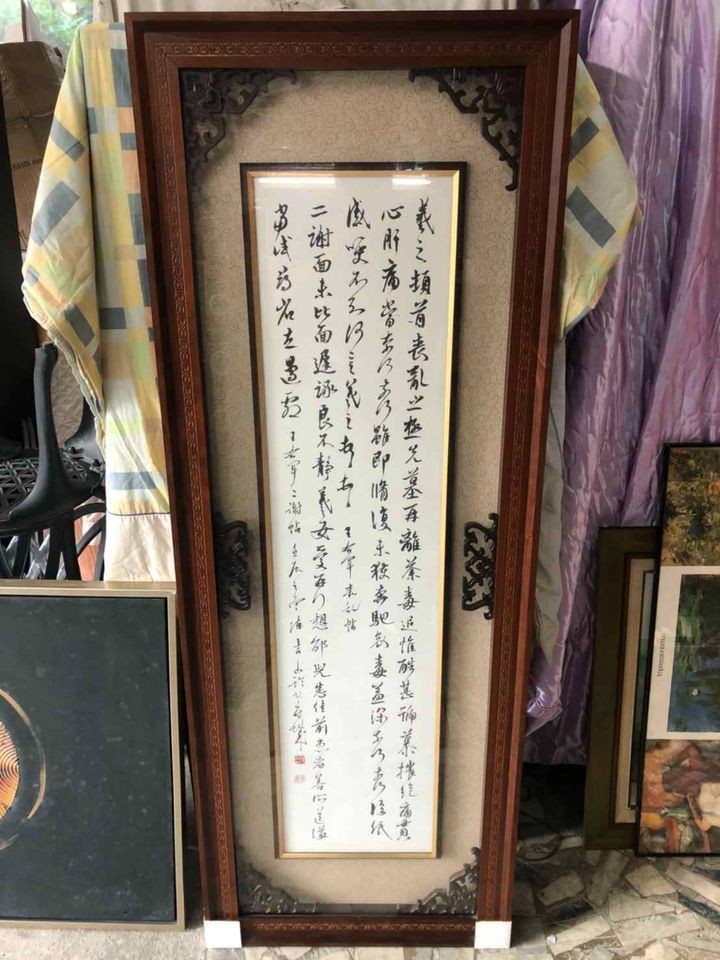 羲之頓首喪亂之極先墓再離荼毒追惟酷甚號慕摧絕痛貫
心肝痛當奈何奈何雖即脩復未獲奔馳哀毒益深奈何奈何臨紙
感哽不知何言羲之頓首頓首 王右軍喪亂帖
二謝面未比面遲詠良不靜羲女愛再拜想邵兒悉佳前患者善所送議
當試尋省左邊劇 王右軍二謝帖 壬辰之